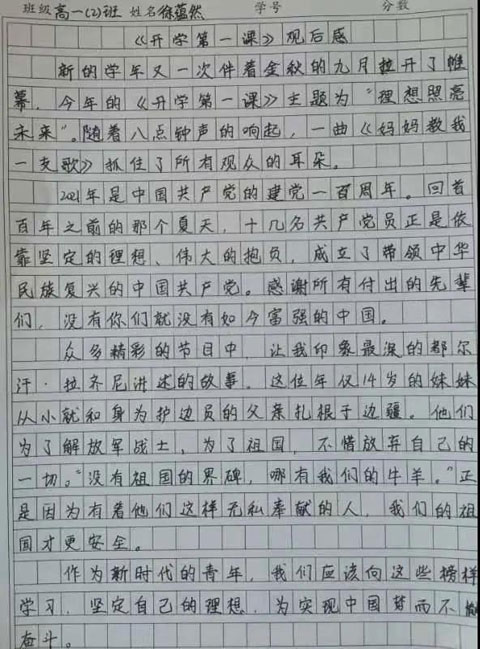 班级高一(2)班 姓名徐蕴然 学号 分数
《开学第一课》观后感
新的学年又一次伴着金秋的九月拉开了帷
幕，今年的《开学第一课》主题为“理想照亮
未来”。随着八点钟声的响起，一曲《妈妈教我
一支歌》抓住了所有观众的耳朵。
2021年是中国共产党的建党一百周年。回首
百年之前的那个夏天，十几名共产党员正是依
靠坚定的理想、伟大的抱负，成立了带领中华
民族复兴的中国共产党。感谢所有付出的先辈
们，没有你们就没有如今富强的中国。
众多精彩的节目中，让我印象最深的都尔
汗·拉齐尼讲述的故事。这位年仅14岁的妹妹
从小就和身为护边员的父亲扎根于边疆。他们
为了解放军战士，为了祖国，不惜放弃自己的
一切。“没有祖国的界碑，哪有我们的牛羊。”正
是因为有着他们这样无私奉献的人，我们的祖
国才更安全。
作为新时代的青年，我们应该向这些榜样
学习，坚定自己的理想，为实现中国梦而不
奋斗。